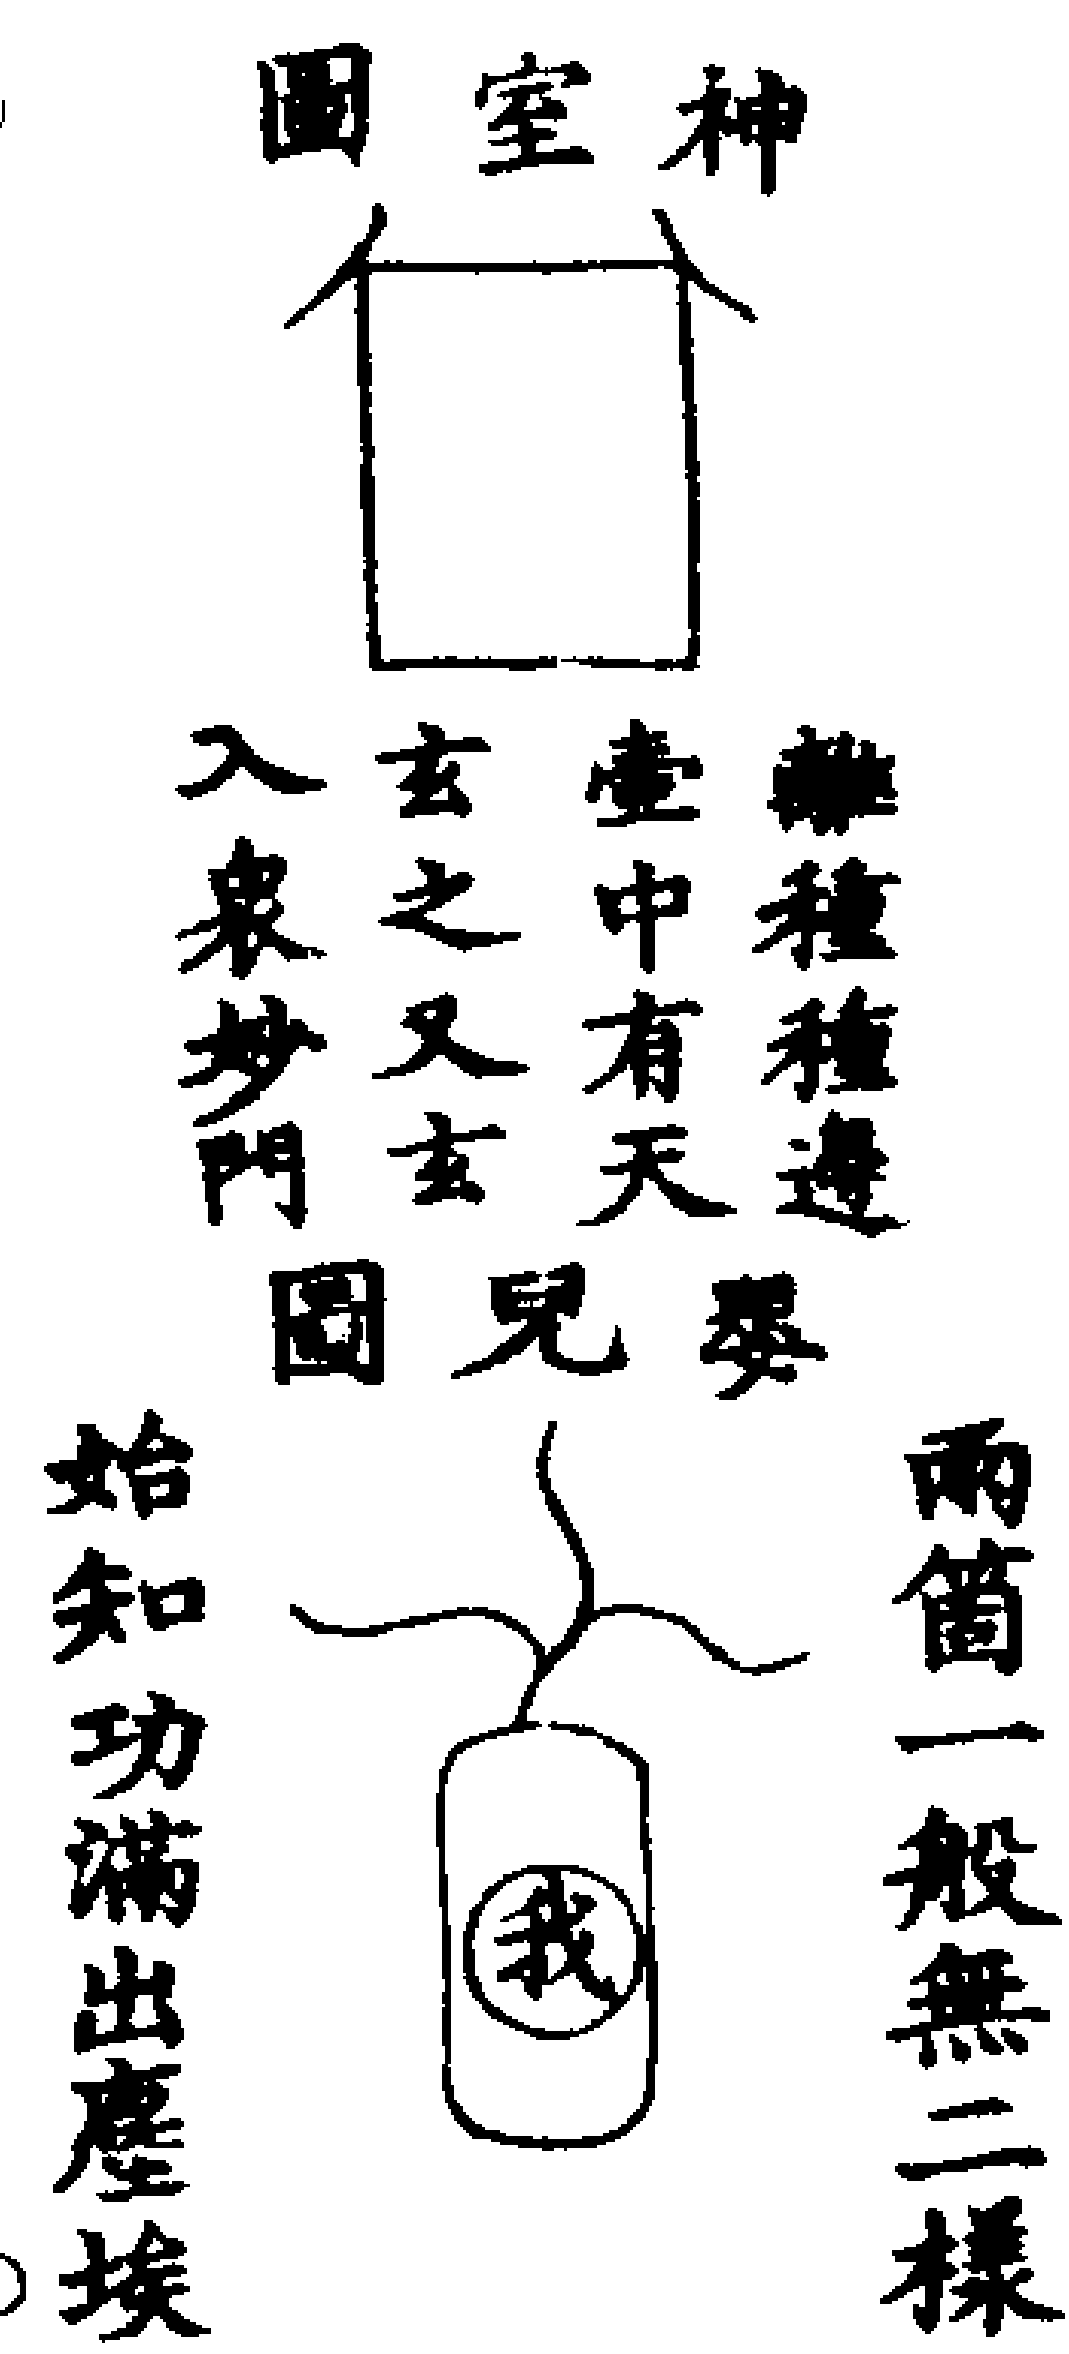 神室圖
離種種邊
壺中有天
玄之又玄
入衆妙門
嬰兒圖
兩箇一般無二樣
我
始知功滿出塵埃